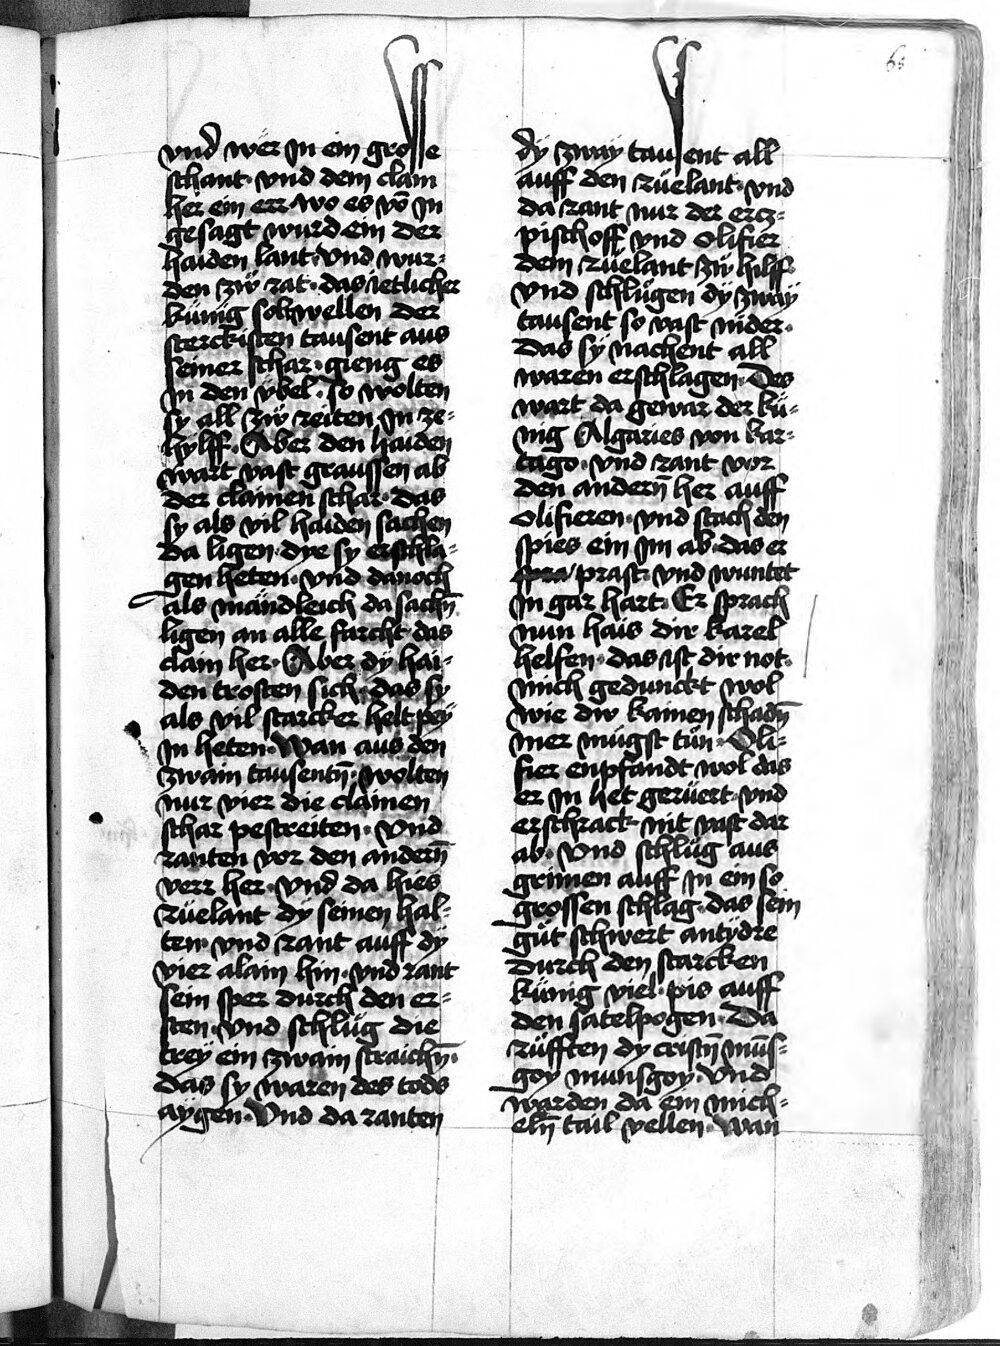 65
vnd wer In ein grosse
schant · vnd dem clain
her ein err · wo es võ In
gesagt wurd ein der
haiden lant · Vnd wur-
den zẅ rat · das ietlicher
künig solt wellen der
sterckisten tausent aus
seiner schar · gieng es
in den ÿbel · So wolten
sy all zẅ zeiten In ze-
hylff · Aber den haiden
wart vast graussen ab
der clainen schar · das
sy als vil haiden sachen
da ligen · dye sy erschla-
gen heten · vnd danoch
als mändleich da sachñ
ligen an alle farcht das
clain her · Aber dÿ hai-
den trosten sich · das sy
als vil starcker helt peÿ
In heten · Wan aus den
zwain tausentñ · wolten
nur vier die clainen
schar pestreiten · Vnd
ranten vor den andern̄
verr her · vnd da hies
Rüelant dÿ seinen hal-
ten · vnd rant auff dÿ
vier alain hin · vnd rant
sein sper durch den er-
sten · vnd schlůg die
treÿ ein zwain straichñ ·
das sy waren des tods
aÿgen · Vnd da ranten
dÿ zwaÿ tausent all
auff den Rüelant · vnd
da rant nur der ercz-
pischoff vnd Olifier
dem Rüelant zẅ hilff ·
Vnd schlůgen dÿ zwaÿ
tausent so vast nider ·
das sÿ nachent all
waren erschlagen · Des
wart da gewar der kü-
nig Algaries von kar-
tago · vnd rant vor
den andern̄ her auff
Olifieren · vnd stach den
spies ein Im ab · das er
spra / prast · vnd wuntet
In gar hart · Er sprach
nun hais dir karel
helfen · das ist dir not ·
mich gedunckt wol
wie dir kainen schadñ
mer mugst tün · Oli-
fier enpfandt wol das
er In het gerüert · vnd
erschrack nit vast dar
ab · Vnd schlůg aus
grimen auff In ein so
grossen schlag · das sein
gůt schwert antÿdre
durch den starcken
künig viel · pis auff
den satelpogen · Da
Rüfften dy cristñ mũs-
goy munsgoy · Vnd
warden da ein mich-
elñ tail vellen · Wan